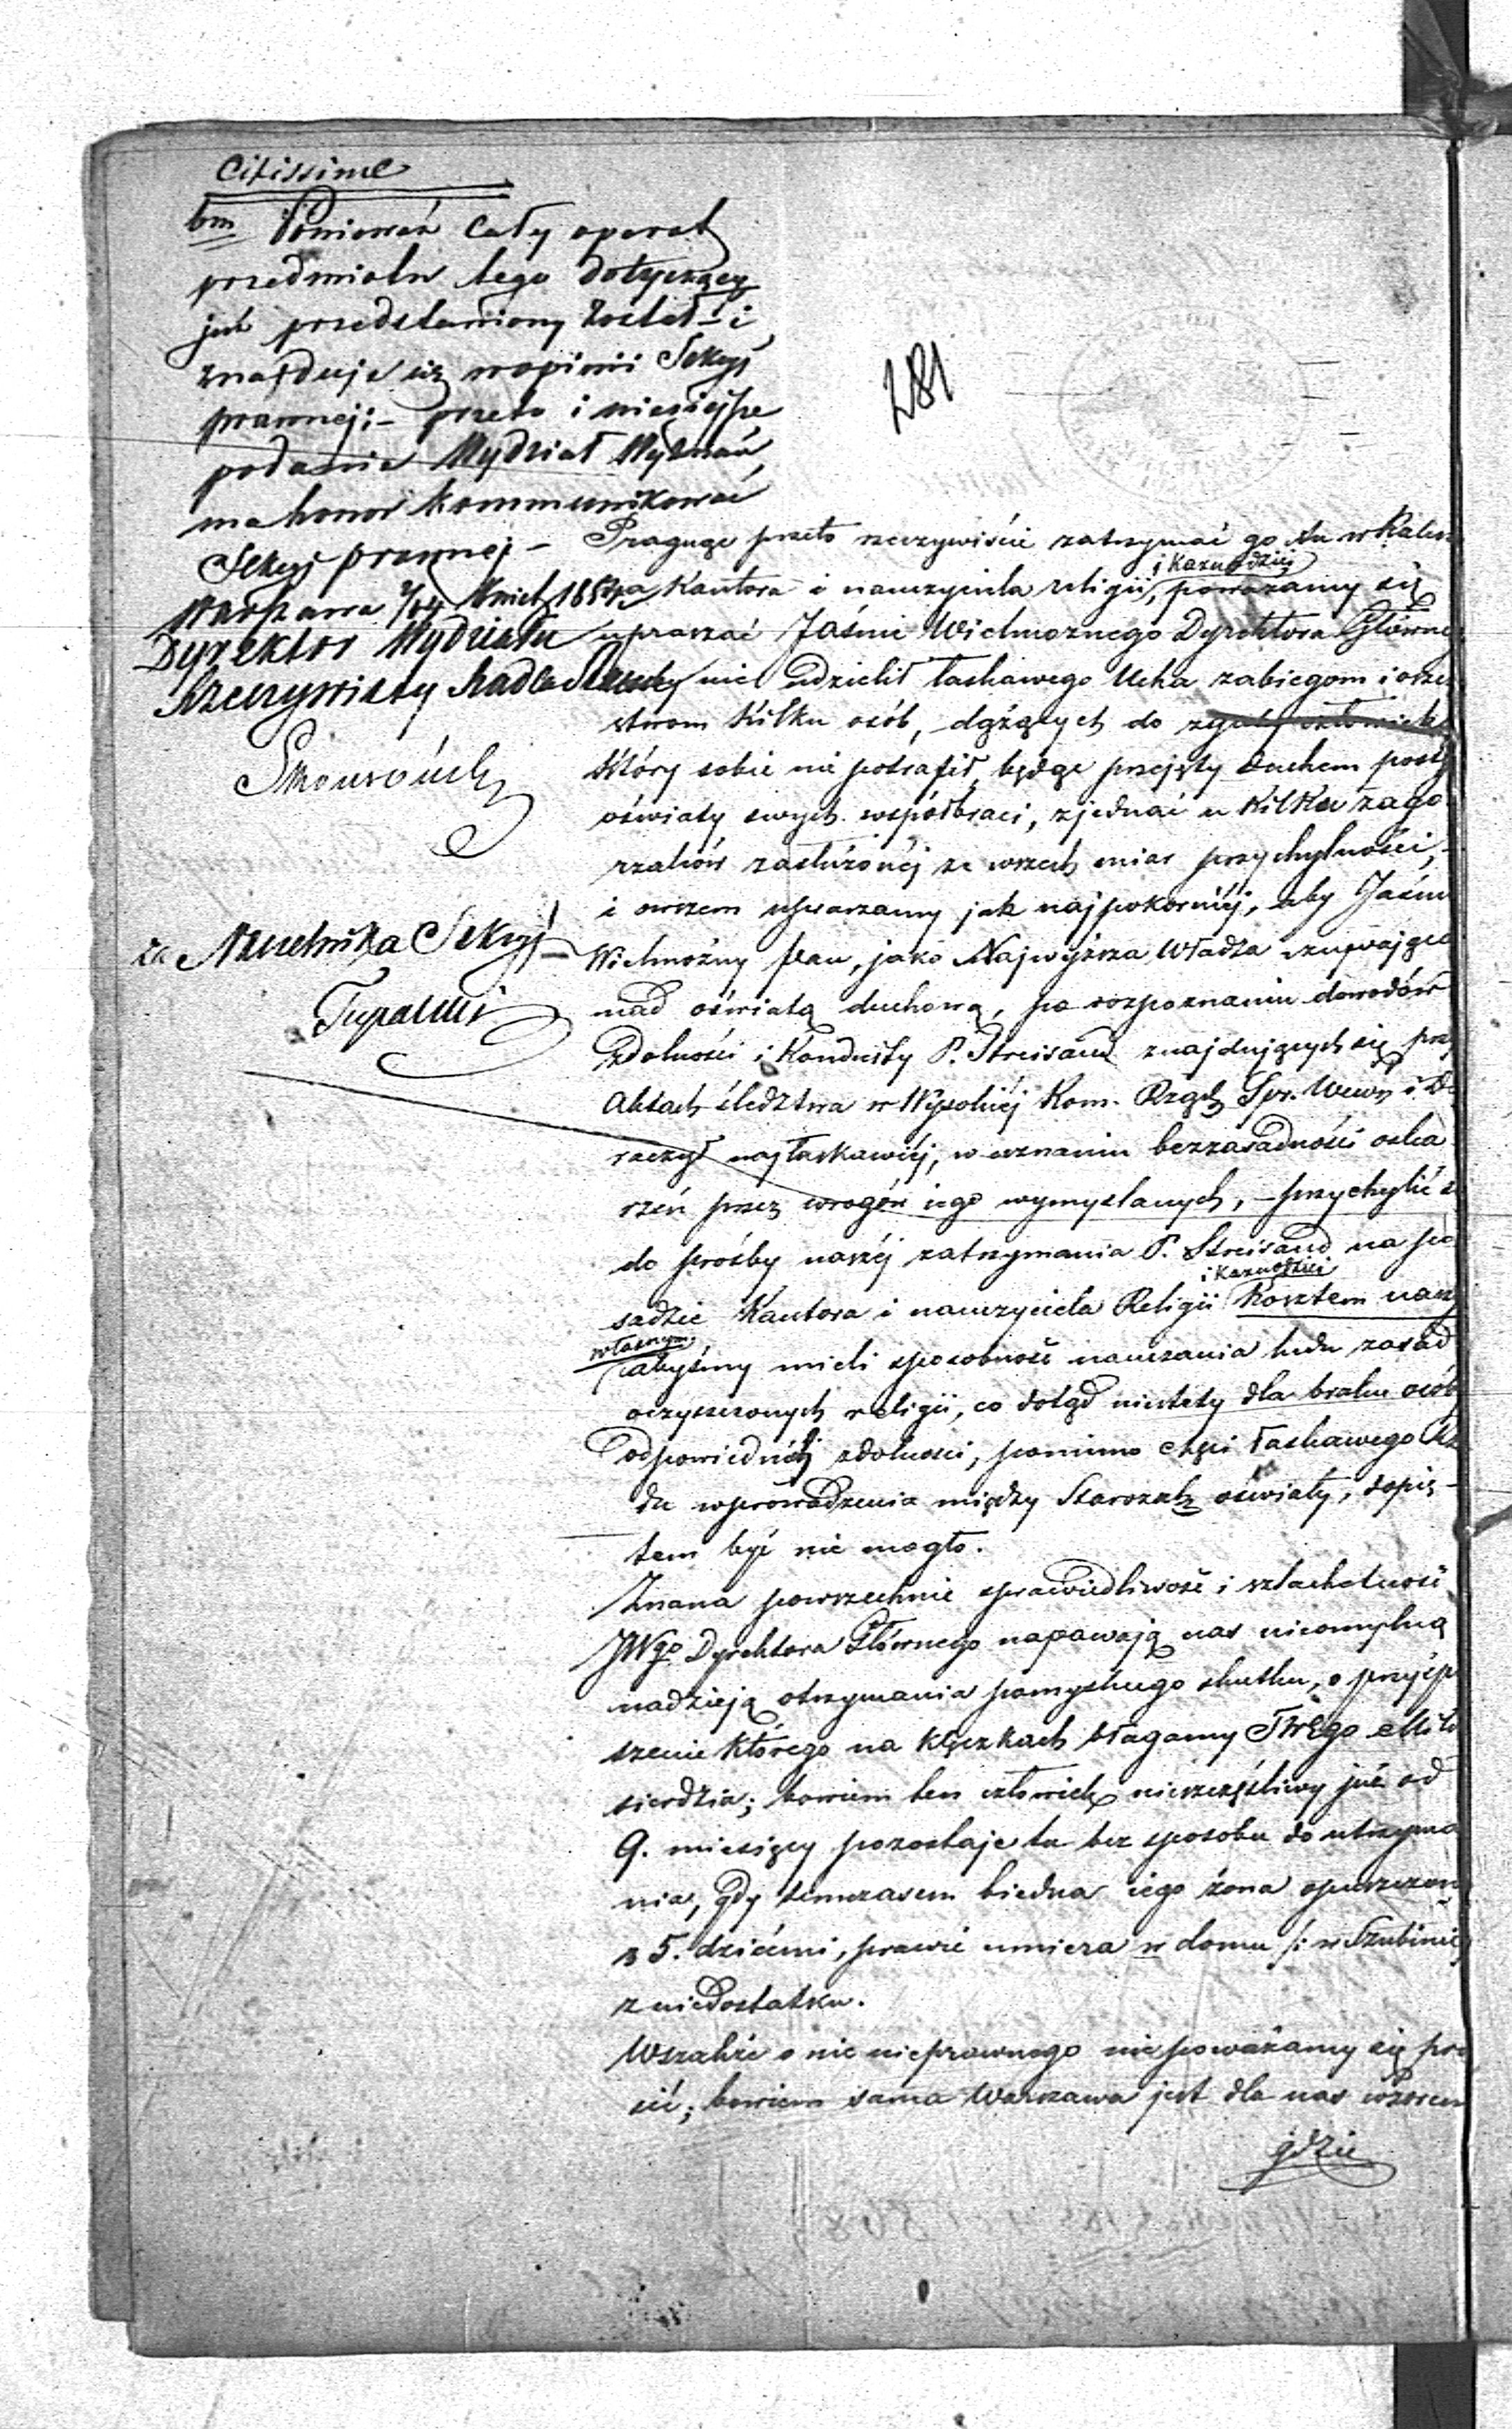 Citissime
bm Ponieważ cały operat
przedmiotu tego dotyczący
już przedstawiony został – i
znajduje się w opinii Sekcyi
prawnej; – przeto i niniejsze
podanie Wydział Wyznań
ma honor kommunikować
Sekcyi prawnej –
Warszawa 2/14 Kwiet. 185
Dyrektor Wydziału
Rzeczywisty Radca Stanu
za Naczelnika Sekcyi
Tupalski
281
Pragnąc przeto rzeczywiście zatrzymać go tu w Kalisz
i Kaznodziei
na Kantora i nauczyciela religii, poważamy się
upraszać Jaśnie Wielmożnego Dyrektora Główne
nie udzielił łaskawego Ucha zabiegom i oszcz
stwom kilku osób, – dążących do zguby człowieka
który sobie nie potrafił, będąc przejęty duchem postę
oświaty swych współbraci, zjednać u kilku zago
rzalców zasłużonéj ze wszech miar przychylności, –
i owszem upraszamy jak najpokorniéj, aby Jaśnie
Wielmożny Pan, jako Najwyższa Władza czuwająca
nad oświatą duchową, po rozpoznaniu dowodów
zdolności i Konduity P. Streisand znajdujących się przy
Aktach śledztwa w Wysokiéj Kom. Rząd. Spr. Wewn. i D
raczył najłaskawiéj, w uznaniu bezzasadności oska
rżeń przez wrogów iego wymyślanych, – przychylić s
do prośby naszéj zatrzymania P. Streisand na po
i Kaznodziei
sadzie Kantora i nauczyciela Religii Kosztem nasz
własnym
abyśmy mieli sposobność nauczania ludu zasad
oczyszczonych religii, co dotąd niestety dla braku osób
odpowiednéj zdolności, pomimo chęci łaskawego Rzą
du wprowadzenia między Starozak. oświaty, dopię –
tem być nie mogło.
Znana powszechnie sprawiedliwość i szlachetność
JWgo Dyrektora Głównego napawają nas nieomylną
nadzieją otrzymania pomyślnego skutku, o przyśp
szenie którego na klęczkach błagamy JWEgo Miło
sierdzia; bowiem ten człowiek nieszczęśliwy już od
9. miesięcy pozostaje tu bez sposobu do utrzyma
nia, gdy tymczasem biedna iego żona opuszczon
z 5. dziećmi, prawie umiera w domu /: w Szubinie
z niedostatku.
Wszakże o nic nieprawnego nie poważamy się pro
sić; bowiem sama Warszawa jest dla nas wzorem
gdzie